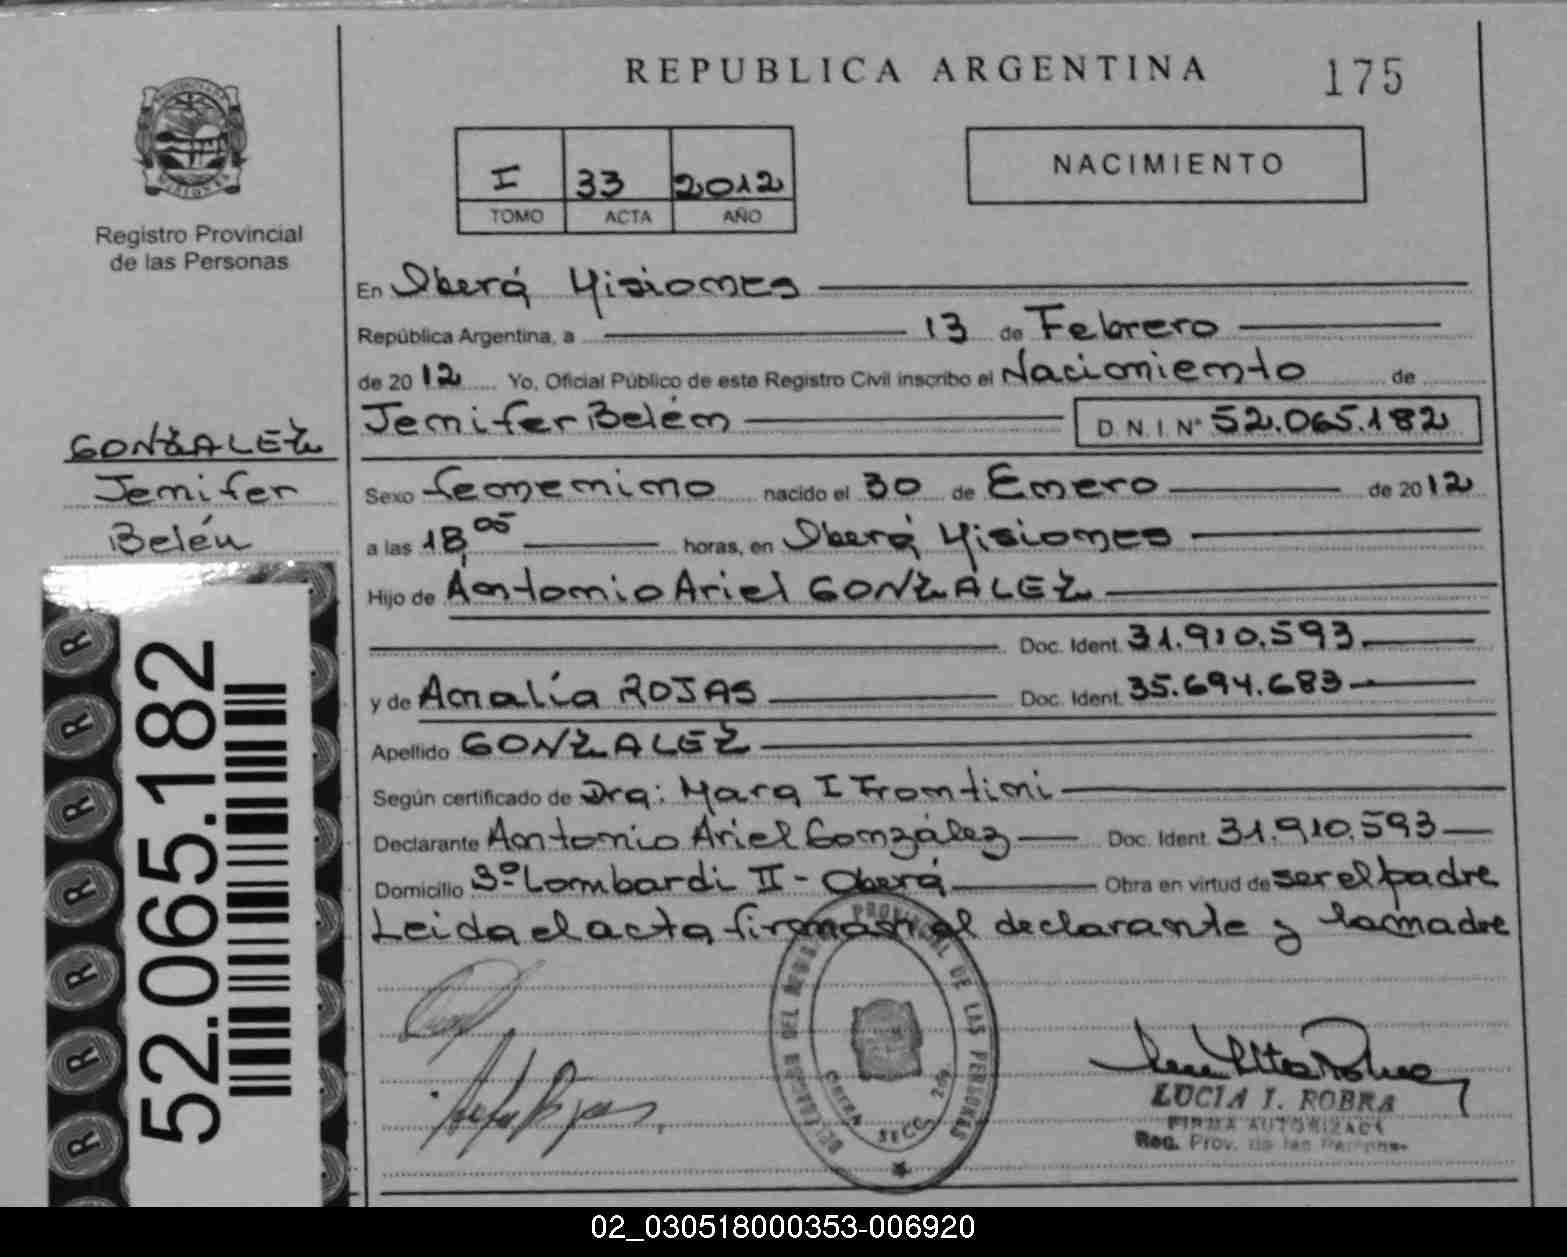 REPUBLICA ARGENTINA 175
I 33 2012
TOMO ACTA AÑO
NACIMIENTO
Registro Provincial
de las Personas
GONZALEZ
Jenifer
Belén
52.065.182
En Oberá Misiones
República Argentina, a 13 de Febrero
de 2012 Yo, Oficial Público de este Registro Civil inscribo el Nacimiento de
Jenifer Belén D.N.I. Nº 52.065.182
Sexo femenino nacido el 30 de Enero de 2012
a las 18,05 horas, en Oberá Misiones
Hijo de Antonio Ariel GONZALEZ
Doc. Ident. 31.910.593
y de Analía ROJAS Doc. Ident. 35.694.683
Apellido GONZALEZ
Según certificado de Dra: Mara I Frontini
Declarante Antonio Ariel González Doc. Ident. 31.910.593
Domicilio Sº Lombardi II - Oberá Obra en virtud de ser el padre
Leida el acta firman el declarante y la madre
REGISTRO PROVINCIAL DE LAS PERSONAS
LUCIA I. ROBRA
FIRMA AUTORIZADA
Reg. Prov. de las Personas
02_030518000353-006920